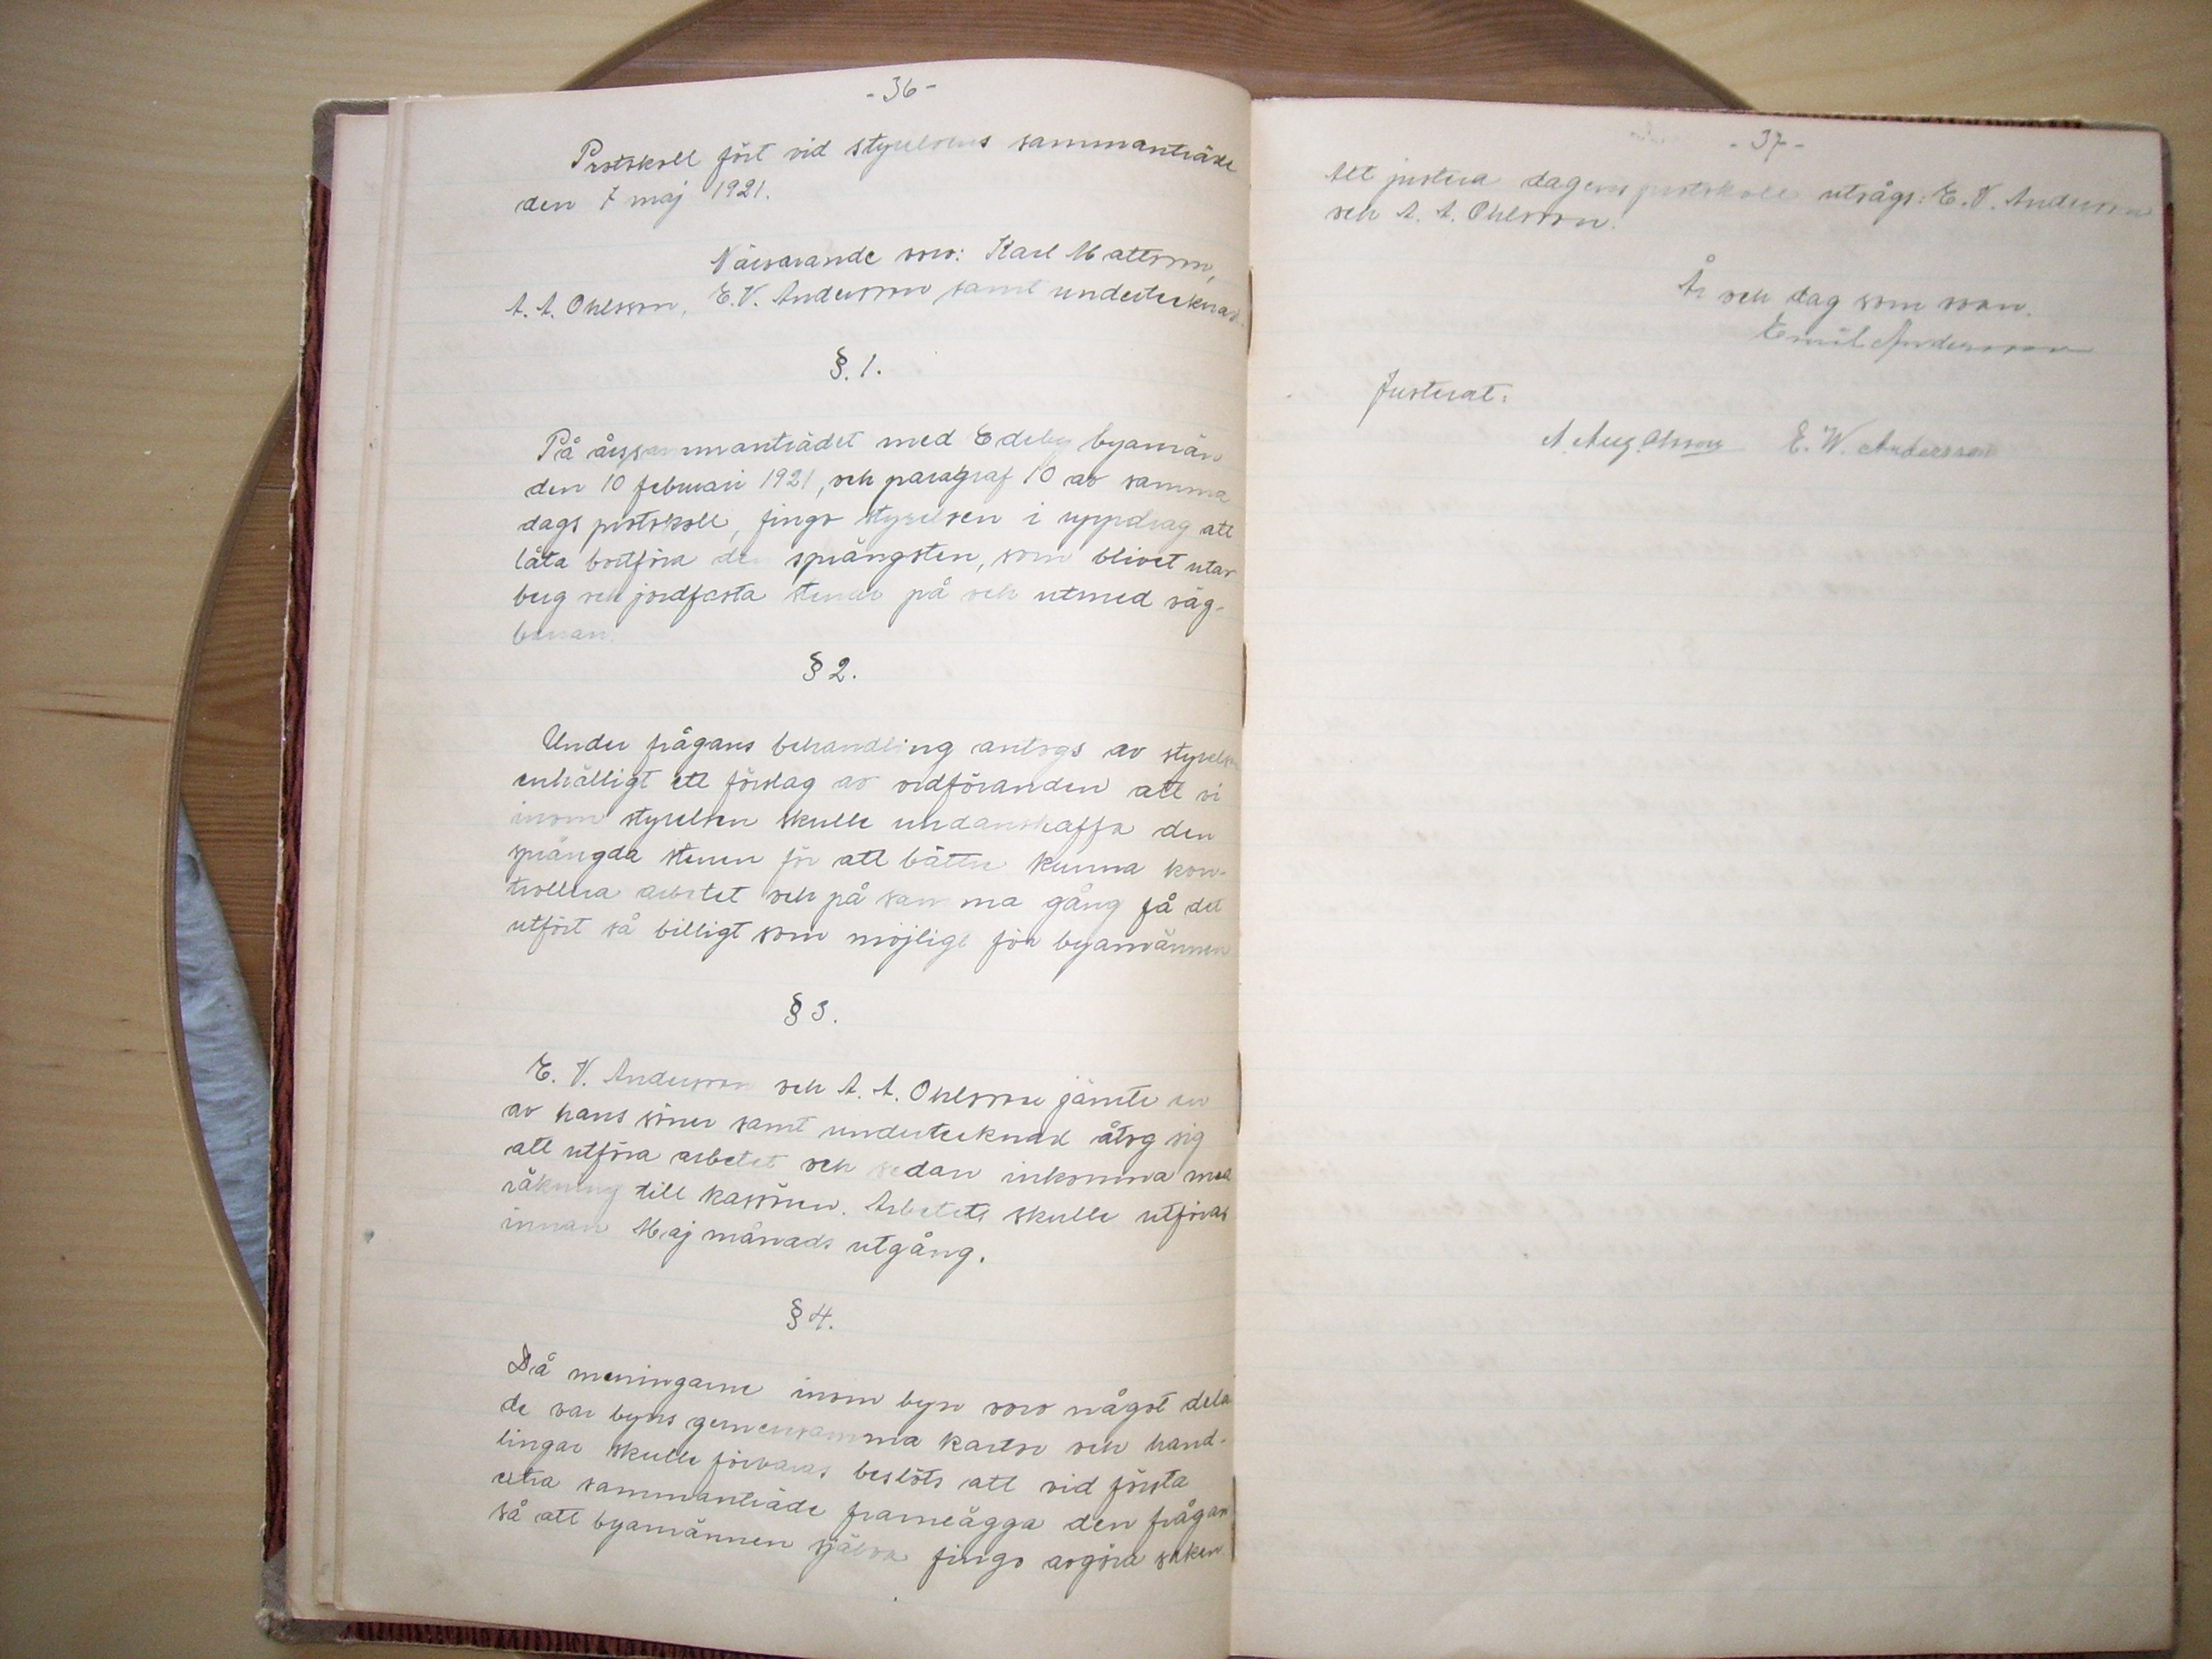 - 36 -
Protokoll fört vid styrelsens sammanträde
den 7 maj 1921.
Närvarande voro: Karl Mattsson,
A. A. Ohlsson, E. V. Andersson samt undertecknad.
§. 1.
På årssammanträdet med Edeby byamän
den 10 februari 1921, och paragraf 10 av samma
dags protokoll, fingo styrelsen i uppdrag att
låta bortföra den sprängsten, som blivet utav
berg och jordfasta stenar på och utmed väg-
banan.
§ 2.
Under frågans behandling antogs av styrelsen
enhälligt ett förslag av ordföranden att vi
inom styrelsen skulle undanskaffa den
sprängda stenen för att bättre kunna kon-
trollera arbetet och på samma gång få det
utfört så billigt som möjligt för byamännen
§ 3.
E. V. Andersson och A. A. Ohlsson jämte en
av hans söner samt undertecknad åtog sig
att utföra arbetet och sedan inkomma med
räkning till kassören. Arbetets skulle utföras
innan Maj månads utgång.
§ 4.
Då meningarne inom byn voro något dela
de var byns gemensamma kartor och hand-
lingar skulle förvaras beslöts att vid första
extra sammanträde framlägga den frågan
så att byamännen själva fingo avgöra saken.
- 37 -
Att justera dagens protokoll utsågs: E. V. Andersson
och A. A. Ohlsson.
År och dag som ovan.
Emil Andersson
Justerat:
A. Aug. Olsson E. W. Andersson